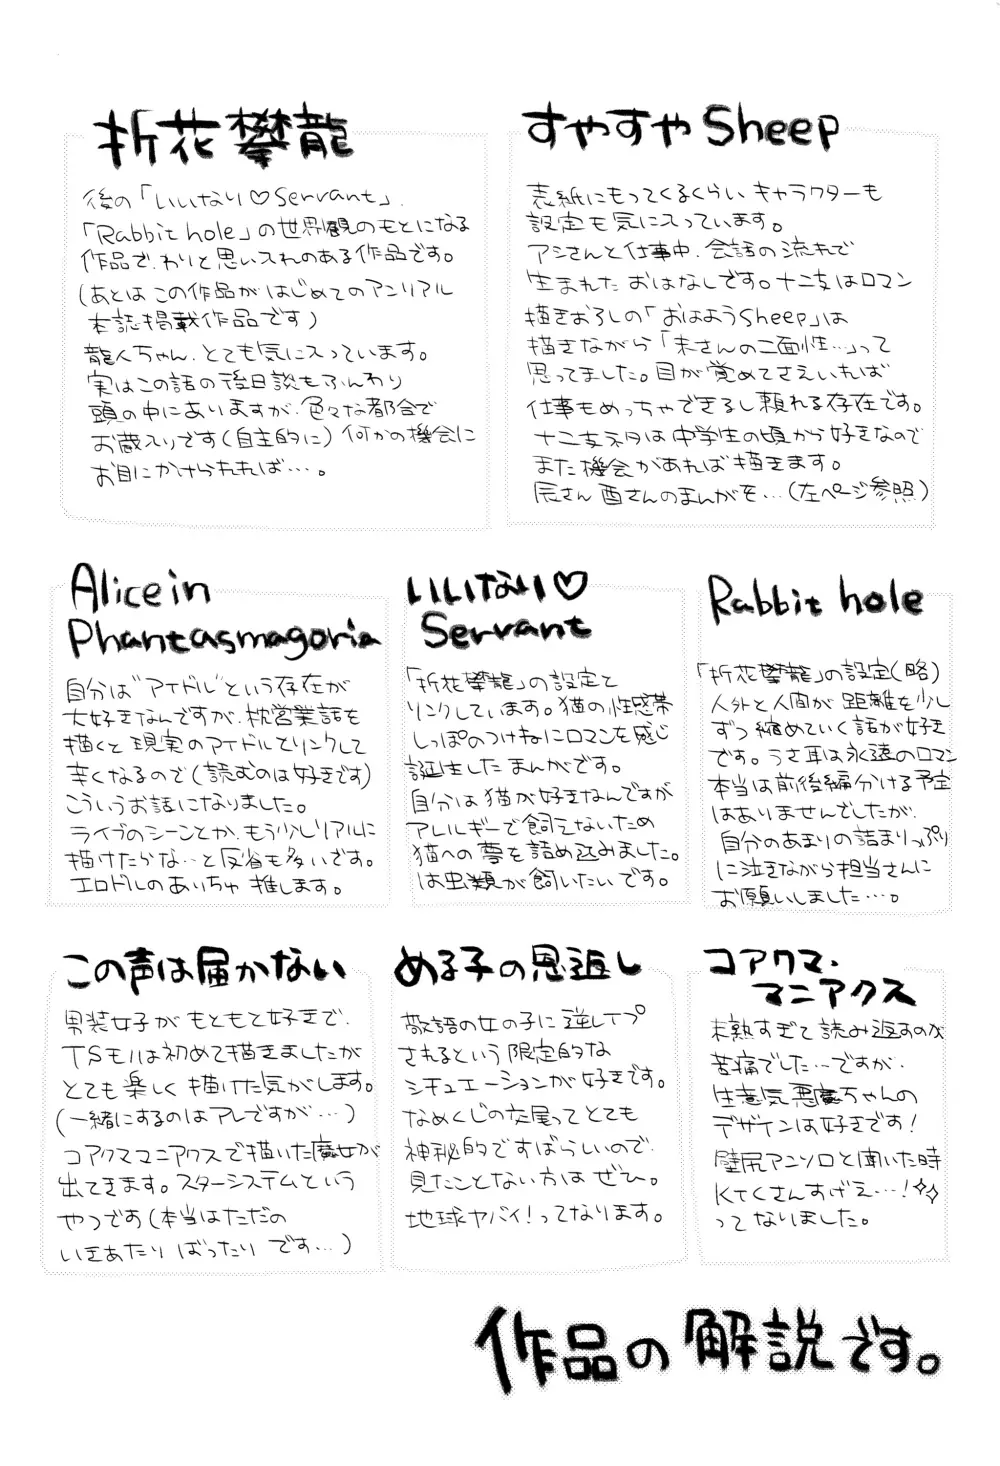 折花攀龍
後の「いいなり♡Servant」.
「Rabbit hole」の世界観のもとになる
作品で、わりと思い入れのある作品です。
(あとは この作品が はじめてのアンリアル
本誌掲載作品です)
龍人ちゃん、とても気に入っています。
実はこの話の後日談もふんわり
頭の中にありますが、色々な都合で
お蔵入りです(自主的に)何かの機会に
お目にかけられれば…。
すやすやSheep
表紙にもってくるくらい キャラクターも
設定も気に入っています。
アシさんと仕事中、会話の流れで
生まれた おはなしです。十二支はロマン
描きおろしの「おはようSheep」は
描きながら「未さんの二面性…」って
思ってました。目が覚めてさえいれば
仕事もめっちゃできるし頼れる存在です。
十二支ネタは中学生の頃から好きなので
また機会があれば描きます。
辰さん 酉さんのまんがを…(左ページ参照)
Alice in
Phantasmagoria
自分は"アイドル"という存在が
大好きなんですが、枕営業話を
描くと現実のアイドルとリンクして
辛くなるので(読むのは好きです)
こういうお話になりました。
ライブのシーンとか、もう少しリアルに
描けたらな…と反省も多いです。
エロドルのあいちゃ 推します。
いいなり♡
Servant
「折花攀龍」の設定と
リンクしています。猫の性感帯
しっぽのつけねにロマンを感じ
誕生したまんがです。
自分は猫が好きなんですが
アレルギーで飼えないため
猫への夢を詰め込みました。
は虫類が飼いたいです。
Rabbit hole
「折花攀龍」の設定(略)
人外と人間が 距離を少し
ずつ縮めていく話が好き
です。うさ耳は永遠のロマン
本当は前後編分ける予定
はありませんでしたが、
自分のあまりの詰まりっぷり
に泣きながら担当さんに
お願いしました…。
この声は届かない
男装女子がもともと好きで、
TSモノは初めて描きましたが
とても楽しく描けた気がします。
(一緒にするのはアレですが…)
コアクママニアクスで描いた魔女が
出てきます。スターシステムという
やつです(本当はただの
いきあたり ばったり です…)
める子の恩返し
敬語の女の子に逆レイプ
されるという限定的な
シチュエーションが好きです。
なめくじの交尾ってとても
神秘的ですばらしいので、
見たことない方は ぜひ。
地球ヤバイ！ってなります。
コアクマ・
マニアクス
未熟すぎて読み返すのが
苦痛でした…ですが、
生意気悪魔ちゃんの
デザインは好きです！
壁尻アンソロと聞いた時
KTCさんすげえ…！✧✧
ってなりました。
作品の解説です。